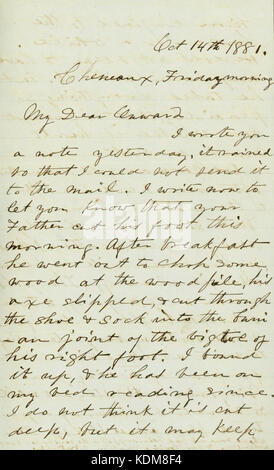 Oct 14th 1881.
Cheneaux, Friday morning
My Dear Onward
I wrote you
a note yesterday, it rained
so that I could not send it
to the mail. I write now to
let you know that your
Father cut his foot this
morning. After breakfast
he went out to chop some
wood at the woodpile, his
axe slipped, & cut through
the shoe & sock into the
an joint of the big toe of
his right foot. I bound
it up, & he has been on
my bed reading since.
I do not think it is cut
deep, but it may keep
alamy
KDM8F4